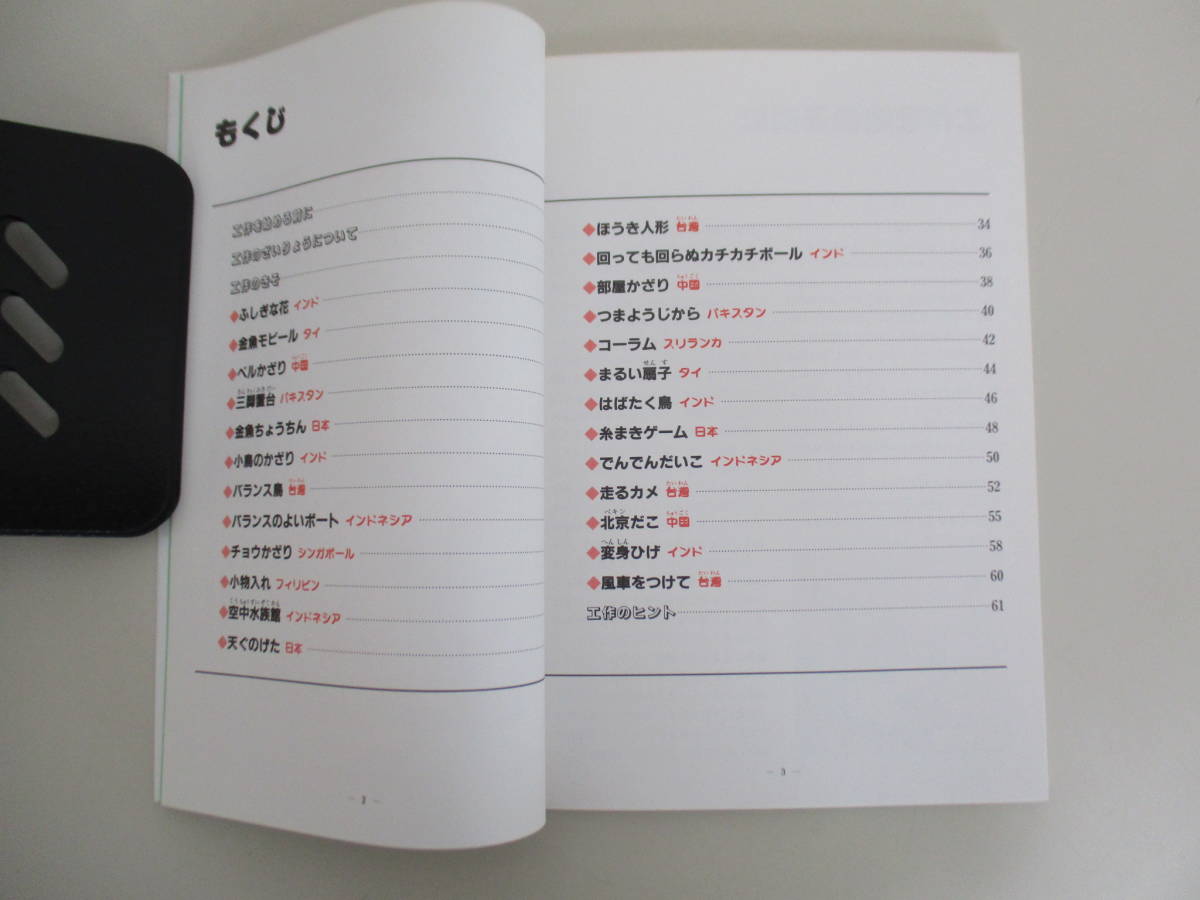 もくじ
工作を始める前に
工作のざいりょうについて
工作のきそ
◆ふしぎな花 インド
◆金魚モビール タイ
◆ベルかざり 中国
◆三脚置台 パキスタン
◆金魚ちょうちん 日本
◆小鳥のかざり インド
◆バランス鳥 台湾
◆バランスのよいボート インドネシア
◆チョウかざり シンガポール
◆小物入れ フィリピン
◆空中水族館 インドネシア
◆天ぐのげた 日本
― 2 ―
◆ほうき人形 台湾 34
◆回っても回らぬカチカチボール インド 36
◆部屋かざり 中国 38
◆つまようじから パキスタン 40
◆コーラム スリランカ 42
◆まるい扇子 タイ 44
◆はばたく鳥 インド 46
◆糸まきゲーム 日本 48
◆でんでんだいこ インドネシア 50
◆走るカメ 台湾 52
◆北京だこ 中国 55
◆変身ひげ インド 58
◆風車をつけて 台湾 60
工作のヒント 61
― 3 ―